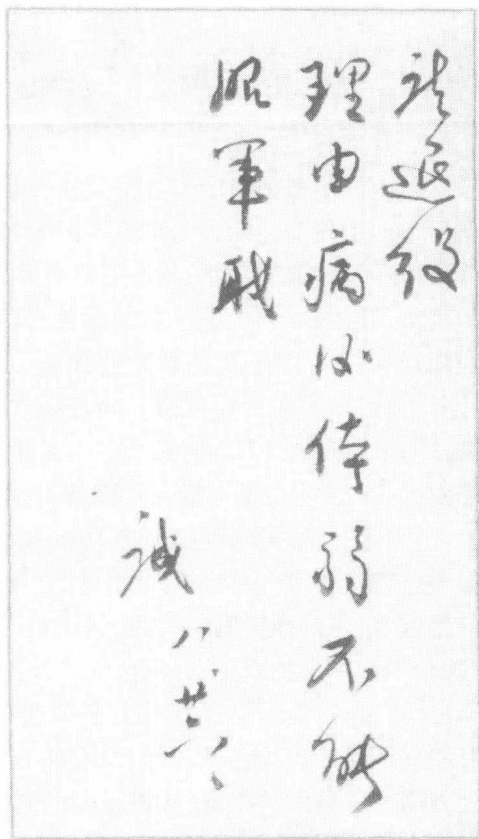 請退役
理由病後体弱不能
服軍職
誠 八、廿六、